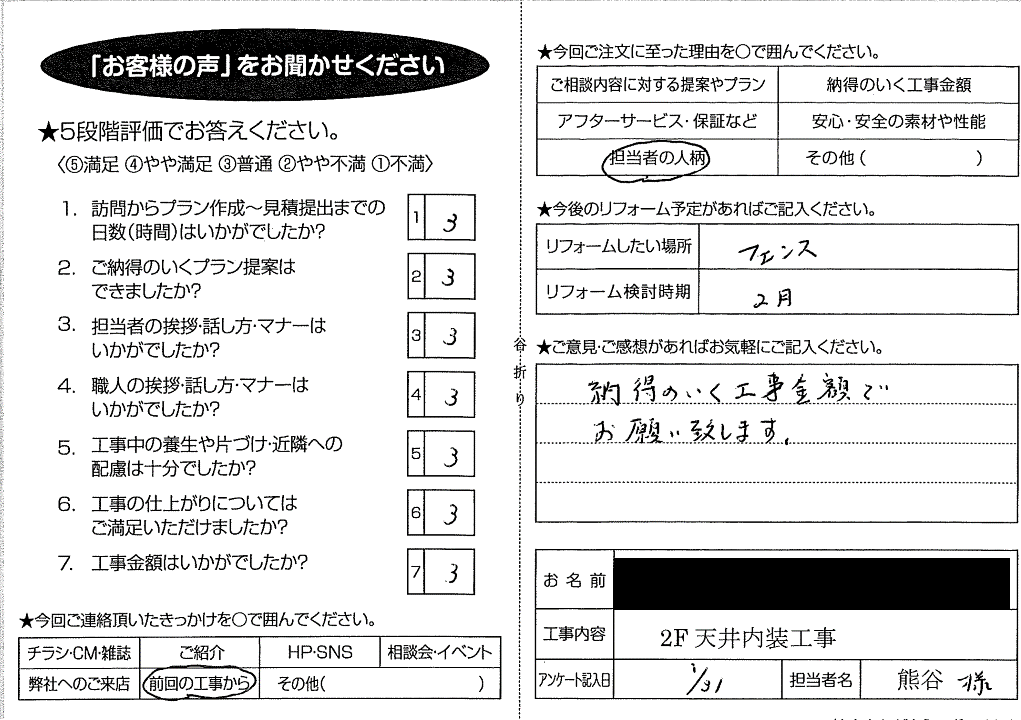 「お客様の声」をお聞かせください
★5段階評価でお答えください。
〈⑤満足 ④やや満足 ③普通 ②やや不満 ①不満〉
1. 訪問からプラン作成～見積提出までの
日数(時間)はいかがでしたか?
1 3
2. ご納得のいくプラン提案は
できましたか?
2 3
3. 担当者の挨拶・話し方・マナーは
いかがでしたか?
3 3
4. 職人の挨拶・話し方・マナーは
いかがでしたか?
4 3
5. 工事中の養生や片づけ・近隣への
配慮は十分でしたか?
5 3
6. 工事の仕上がりについては
ご満足いただけましたか?
6 3
7. 工事金額はいかがでしたか?
7 3
★今回ご連絡頂いたきっかけを〇で囲んでください。
チラシ・CM・雑誌 ご紹介 HP・SNS 相談会・イベント
弊社へのご来店 前回の工事から その他( )
谷折り
★今回ご注文に至った理由を〇で囲んでください。
ご相談内容に対する提案やプラン 納得のいく工事金額
アフターサービス・保証など 安心・安全の素材や性能
担当者の人柄 その他( )
★今後のリフォーム予定があればご記入ください。
リフォームしたい場所 フェンス
リフォーム検討時期 2月
★ご意見・ご感想があればお気軽にご記入ください。
納得のいく工事金額で
お願い致します。
お名前
工事内容 2F 天井内装工事
アンケート記入日 1/31 担当者名 熊谷 様